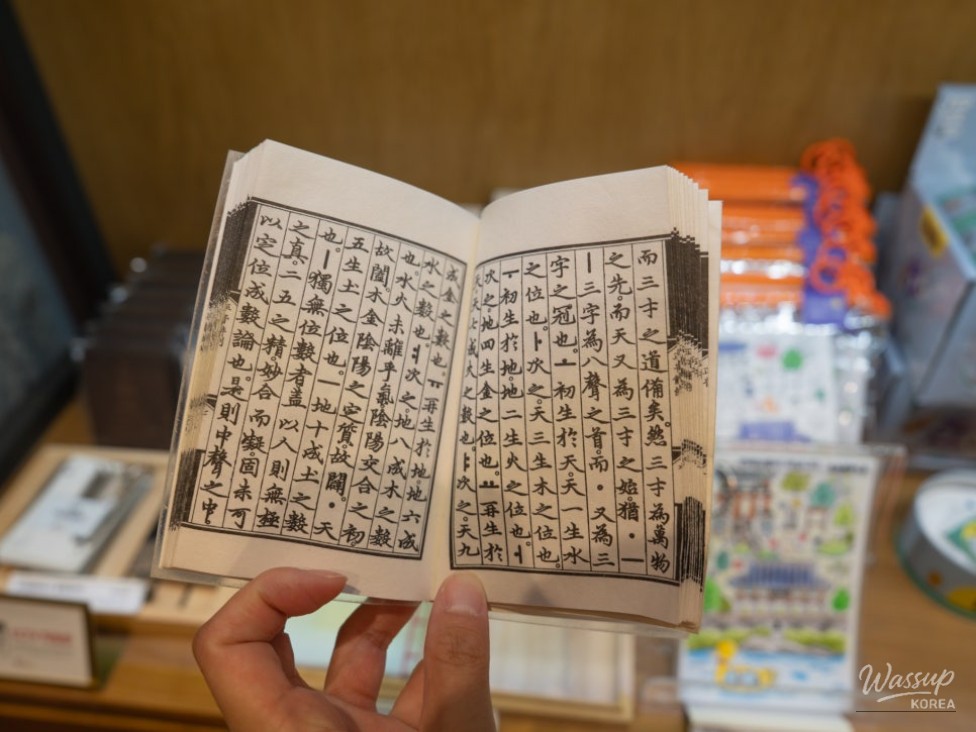 而三才之道備矣。然三才為萬物
之先。而天又為三才之始。猶・ㅡ
ㅣ三字為八聲之首。而・又為三
字之冠也。ㅗ初生於天。天一生水
之位也。ㅏ次之。天三生木之位也。
ㅜ初生於地。地二生火之位也。ㅓ
次之。地四生金之位也。ㅛ再生於
天。天七成火之數也。ㅑ次之。天九
成金之數也。ㅠ再生於地。地六成
水之數也。ㅕ次之。地八成木之數
也。水火未離乎氣。陰陽交合之初。
故闔。木金陰陽之定質。故闢。・天
五生土之位也。ㅡ地十成土之數
也。ㅣ獨無位數者。盖以人則無極
之真。二五之精。妙合而凝。固未可
以定位成數論也。是則中聲之中。
Wassup
KOREA